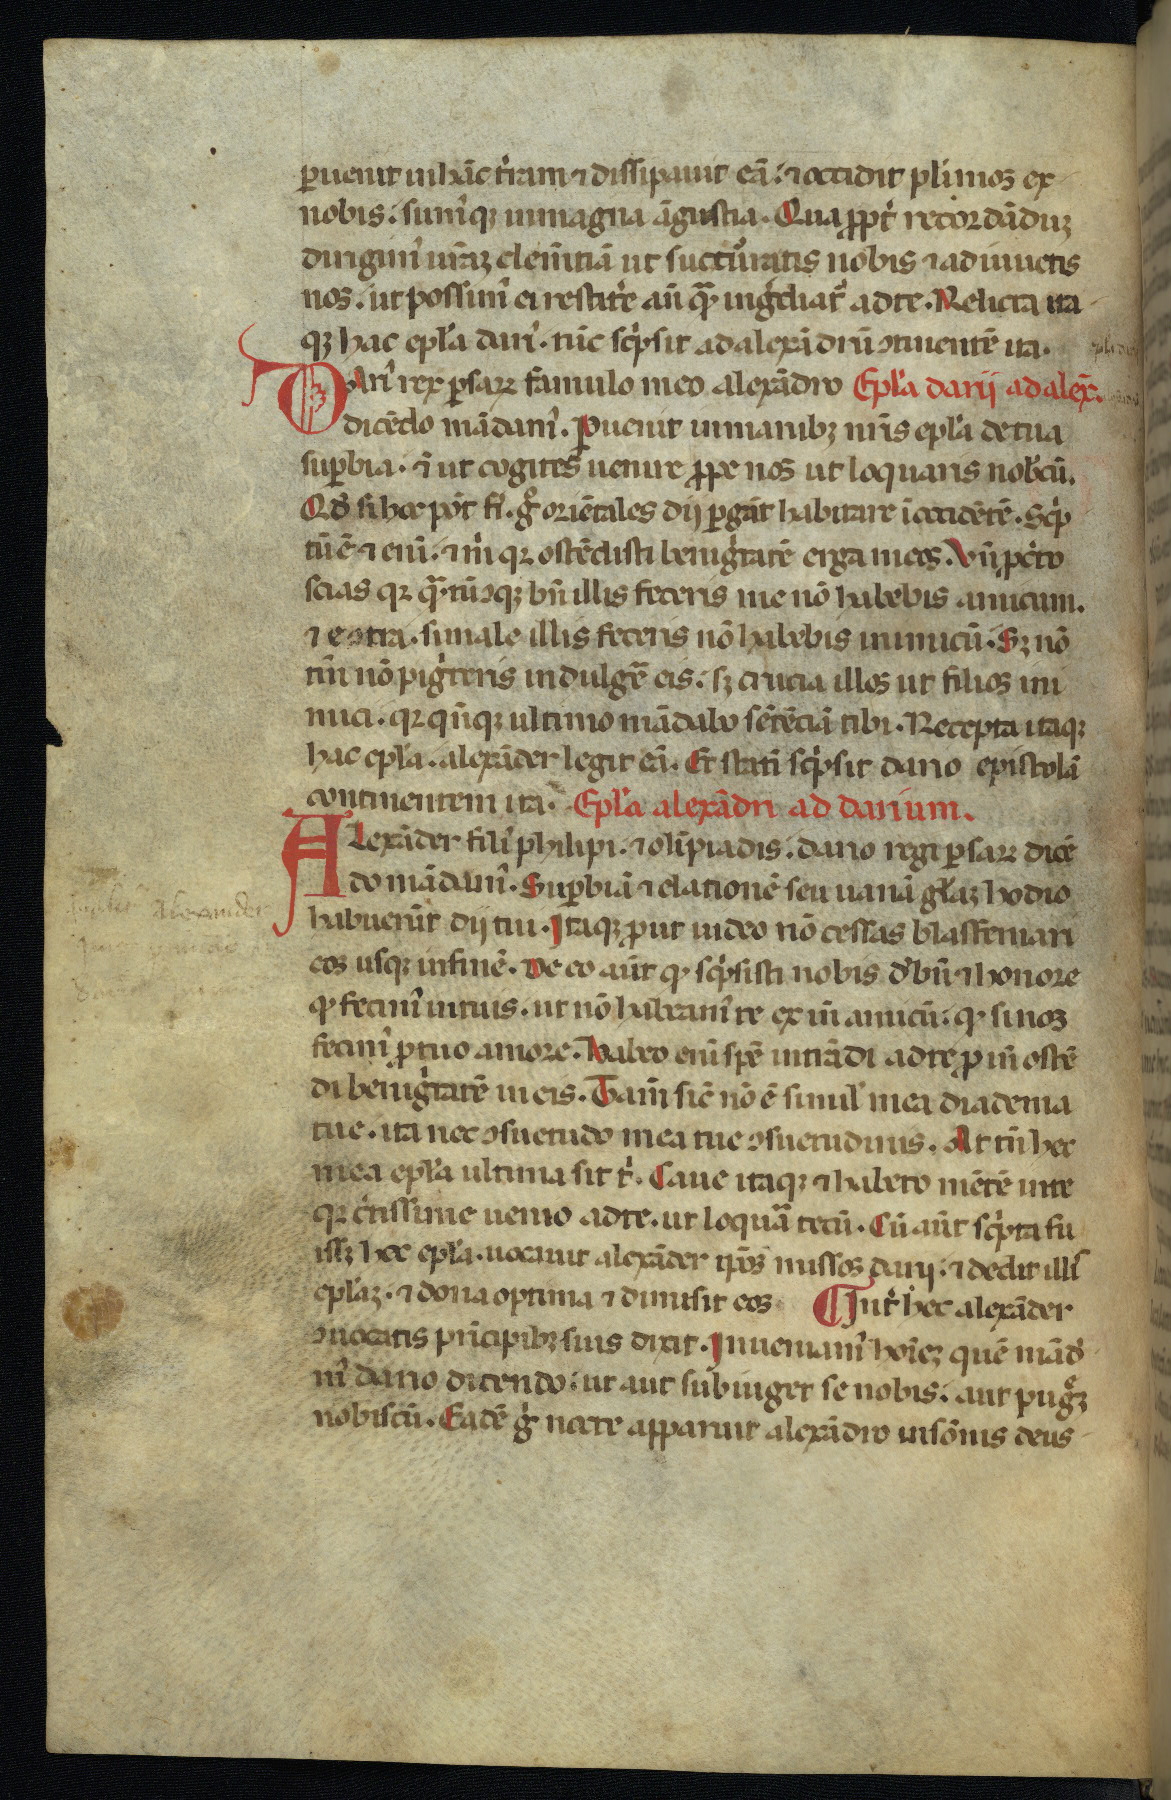 ꝑuenit in hāc t̄ram ⁊ dissipauit eā: ⁊ occidit pl̄imos ex
nobis: sum̄qꝫ in magna āgustia. Qua ꝓpt̄ recordādūꝫ
dirigim̄ ur̄aꝫ clem̄tiā ut succurratis nobis ⁊ adiuuetis
nos. ut possim̄ ei restit̄e an̄ qꝫ ingrediat̄ ad te. Relicta ita
qꝫ hac ep̄la darī. nūc sc̄psit ad alexādrū ↄtinentē ita.
DArī rex ꝑsaꝝ famulo meo alexādro Ep̄la darij ad alex̄.
dicēdo mādam̄. Peruenit in manibꝫ nr̄is ep̄la de tua
suꝑbia. ⁊ ut cogites uenire ꝓpe nos ut loquaris nob̄cū.
Qd̄ si hoc pōt fi̅. gͦ oriētales dij ꝑgāt habitare ī occidētē. Sc̄p
tū ē ⁊ enī. ⁊ m̄ qꝛ ostēdisti benigͥtatē erga meos. Vn̄ ꝑc̄to
scias qꝛ qͣntūↄqꝫ bn̄ illis feceris me nō habebis amicum.
⁊ eↄtra. si male illis feceris nō habebis inimicū. Sꝫ nō
tn̄ nō pigͥteris indulgē eis: sꝫ crucia illos ut filios ini
mici. qꝛ qn̄qꝫ ultimo mādabo sētēciā tibi. Recepta itaqꝫ
hac ep̄la. alexāder legit eā. Et statī sc̄psit dario epistolā
continentem ita. Ep̄la alexādri ad darium.
ALexāder filī philipi. ⁊ olīpiadis. dario regi ꝑsaꝝ dicē
do mādam̄. Suꝑbiā ⁊ elationē seu uanā gl̄aꝫ hodio
habuerūt dij tui. Itaqꝫ ꝓut uideo nō cessas blasfemari
eos usqꝫ in finē. De eo aūt qꝫ sc̄psisti nobis d̄ bn̄ ⁊ honore
qꝫ fecim̄ in tuis. ut nō haberem̄ te ex in̄ amicū: qꝫ si nos
fecim̄ ꝓ tuo amore. Habeo enī spē intrādi ad te ꝓ in̄ ostē
di benigͥtatē in eis. Tam̄ sic̄ nō ē simil̄ mea diadema
tue. ita nec ↄsuetudo mea tue ↄsuetudinis. At tn̄ hec
mea ep̄la ultima sit t̄. Caue itaqꝫ ⁊ habeto mētē in te
qꝛ c̄tissime uenio ad te. ut loquā tecū. Cū aūt sc̄pta fu
issꝫ hec ep̄la. uocauit alexāder ip̄os missos darij. ⁊ dedit illī
ep̄laꝫ. ⁊ dona optima ⁊ dimisit eos. Int̄ hec alexāder
ↄuocatis principibꝫ suis dixit. Inueniam̄ hoīeꝫ quē mād
m̄ dario dicendo: ut aut subiuget se nobis. aut pugͣꝫ
nobiscū. Eadē gͥ nocte apparuit alexādro in sōnis deus